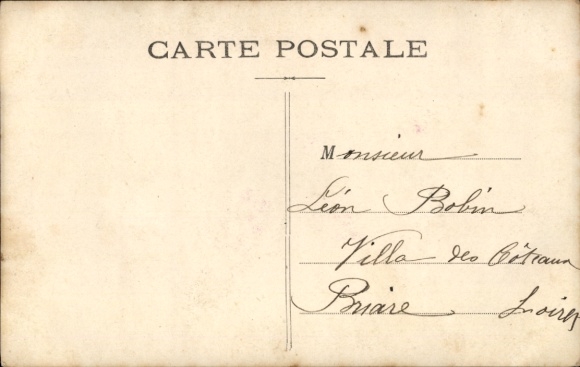 CARTE POSTALE
Monsieur
Léon Bobin
Villa des Côteaux
Briare Loiret